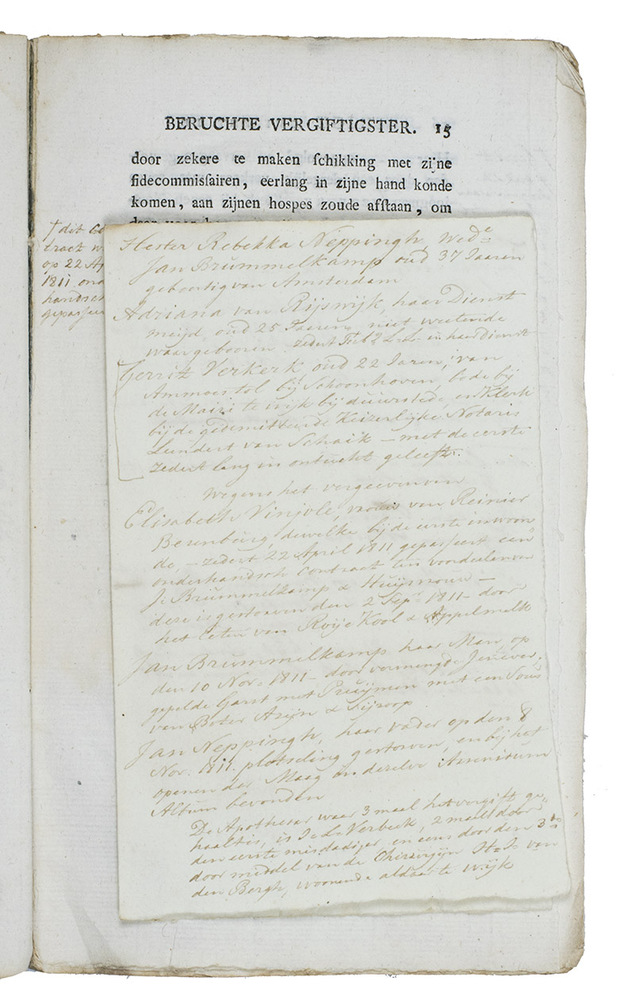 BERUCHTE VERGIFTIGSTER. 15
door zekere te maken ſchikking met zijne
fidecommisſairen, eerlang in zijne hand konde
komen, aan zijnen hospes zoude afſtaan, om
† dit
tract
op 22 Ap
1811 ond
handsch
gepasseer
Hester Rebekka Neppingh, Wede.
Jan Brummelkamp oud 37 Jaaren
geboortig van Amsterdam
Adriana van Rijswijk, haar Dienst
meijd, oud 25 Jaeren, niet weetende
waar geboren zedert in haar dienst
Gerrit Verkerk, oud 22 Jaren, van
Ammerstol bij Schoonhoven, bode bij
de Mairi te wijk bij duurstede, en Klerk
bij de gedemitteerde Keizerlijke Notaris
Leendert van Schaik – met de eerste
zedert lang in ontucht geleeft.
Wegens het vergeeven van
Elisabeth Vinjole, van Reinier
Berenburg, dewelke bij de eerste inwoon
de – zedert 22 April 1811 gepasseert een
onderhandsch Contract ten voordeelen van
J. Brummelkamp & Huijsvrouw –
deze is gestorven den 2 Sepr. 1811 – door
het eten van Roije Kool & Appelmalk
Jan Brummelkamp haar Man op
den 10 Nov. 1811 – door vermengde Jenever,
gepelde Garst met Pruijmen met een Sous
van Boter Azijn & Sijroop
Jan Neppingh, haar Vader op den 8
Nov. 1811 plotseling gestorven, en bij het
openen der Maag in dezelve Arsenicum
Album bevonden
De Apothecar waar 3 maal het vergift ge-
haalt is, is Verbeek, 2 maal door
den eerste misdadiger, en eens door den 3de
door middel van de Chirurgijn van
den Bergh, woonende aldaar te Wijk